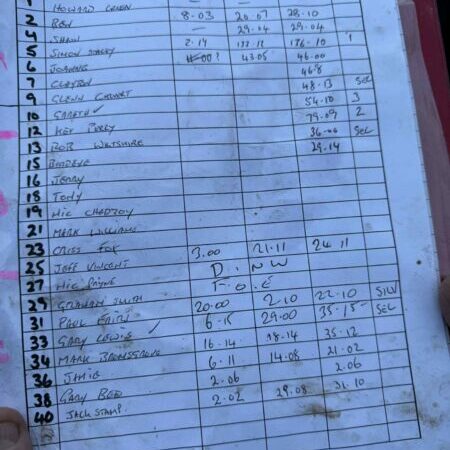 1 HOWARD 8.03 20.07 28.10
2 BEN — 29.04 29.04
4 SHAW 2.14 176.10 1
5 SIMON STACEY 43.05 46.00
6 JOANNE 46.8
7 CLAYTON 48.13 SEL
9 GLENN 54.10 3
10 GARETH ✓ 79.09 2
12 KEV 36.00 SEL
13 BOB WILTSHIRE 29.14
15 BIRDEYE
16 JENNY
18 TONY
19 MIC
21 MARK WILLIAMS
23 CRISS FOX 3.00 21.11 24.11
25 JEFF VINCENT D.NW
27 MIC PAYNE F.O.E
29 GRAHAM SMITH 20.00 2.10 22.10 SIL
31 PAUL 6.15 29.00 35.15 SEL
33 GARY LEWIS ✓ 16.14 18.14 35.12
34 MARK 6.11 14.08 21.02
36 JAMIE 2.06 2.06
38 GARY 2.02 29.08 31.10
40 JACK STAMP.